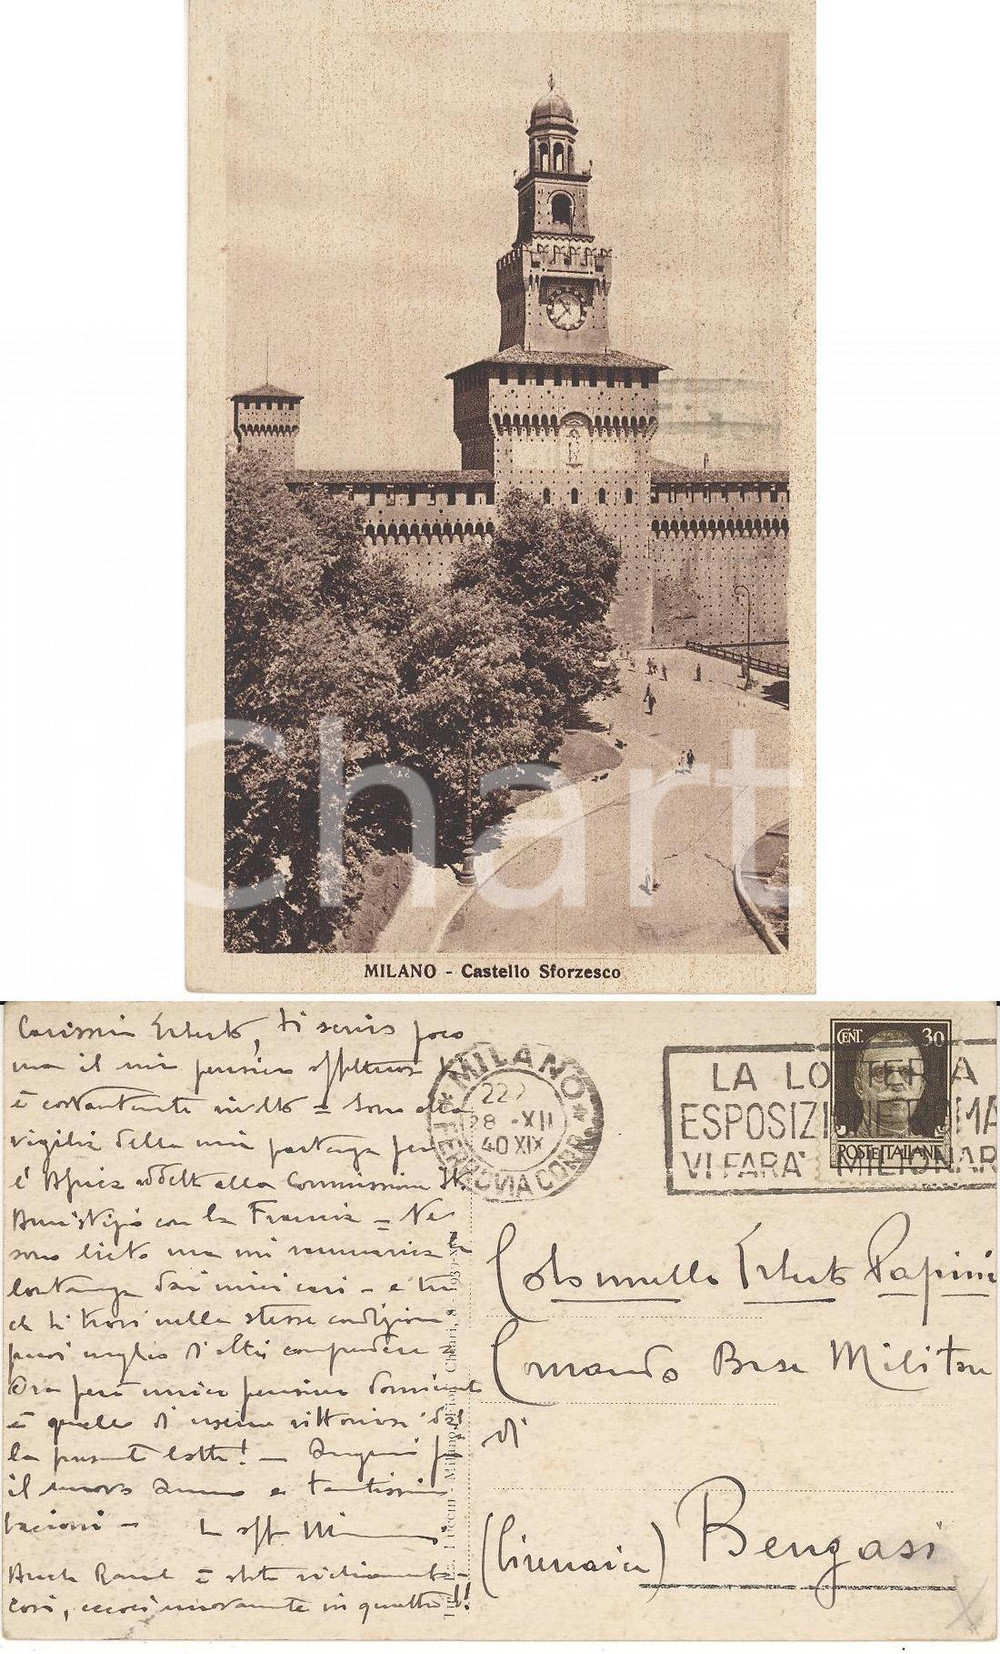 Chart
MILANO - Castello Sforzesco
Carissimo Erberto, ti scrivo poco
ma il mio pensiero affettuoso
è costantemente rivolto = Sono alla
vigilia della mia partenza per
l'Africa addetto alla Commissione It.
Armistizio con la Francia = Ne
sono lieto ma mi rammarica la
lontananza dai miei cari - e tu
che ti trovi nelle stesse condizioni
puoi meglio d'altri comprendere
Ora però unico pensiero dominante
è quello di uscire vittoriosi dal
la presente lotta! - Auguri per
il nuovo anno e tantissimi
bacioni -
è stato
così, eccoci nuovamente in quattro!!
MILANO
FERROVIA CORR.
22
28 -XII
40 XIX
LA LOTTERIA
ESPOSIZIONE ROMA
VI FARA' MILIONAR
CENT. 30
POSTE ITALIANE
Colonnello Erberto Papini
Comando Base Militare
di
(Cirenaica) Bengasi